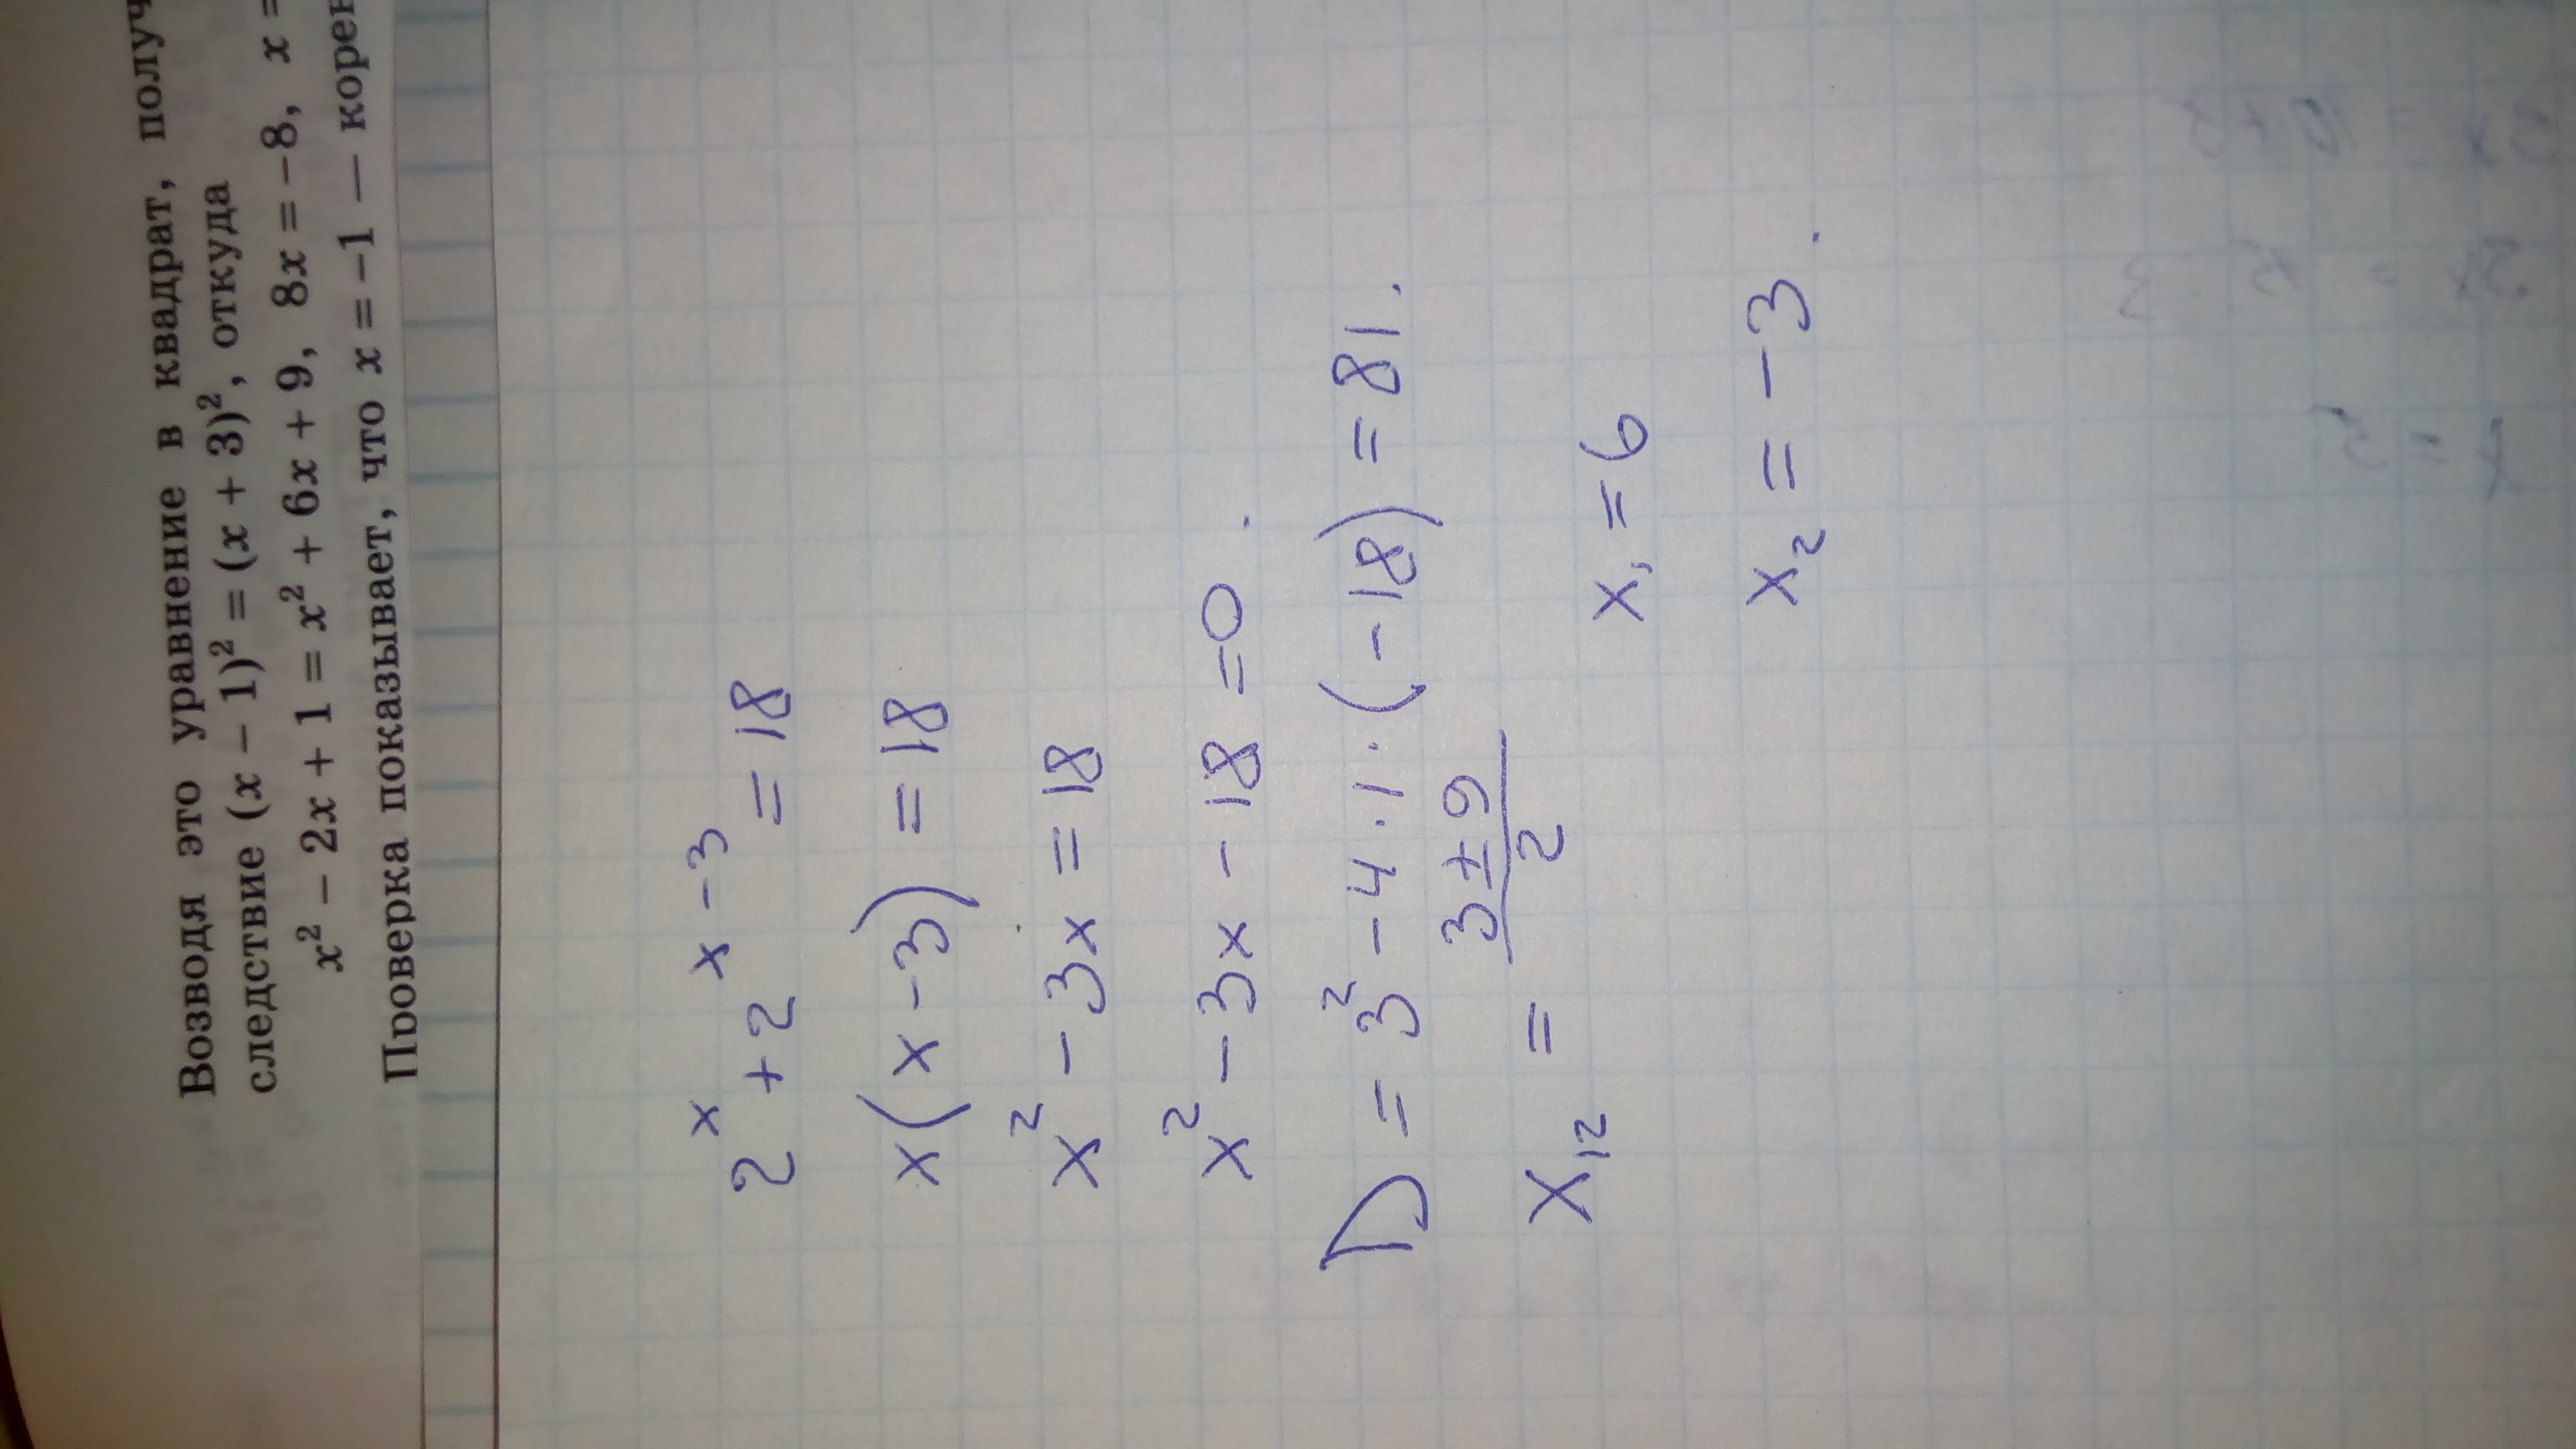 Возводя это уравнение в квадрат, получ
следствие (x − 1)² = (x + 3)², откуда
x² − 2x + 1 = x² + 6x + 9, 8x = −8, x =
Проверка показывает, что x = −1 — корен
2ˣ + 2ˣ⁻³ = 18
x(x − 3) = 18
x² − 3x = 18
x² − 3x − 18 = 0.
D = 3² − 4 · 1 · (−18) = 81.
x₁₂ = (3 ± 9)/2
x₁ = 6
x₂ = −3.